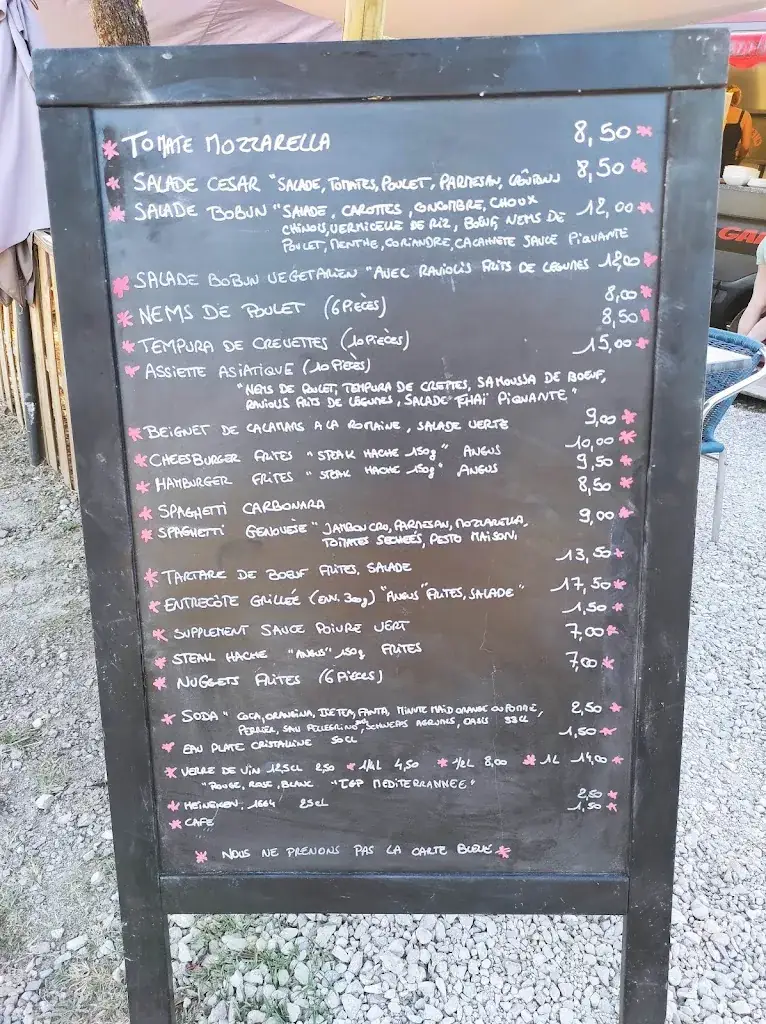 * TOMATE MOZZARELLA 8,50 *
* SALADE CESAR "SALADE, TOMATES, POULET, PARMESAN, CROÛTONS 8,50 *
* SALADE BOBUN "SALADE, CAROTTES, CONCOMBRE, CHOUX 12,00 *
CHINOIS, VERMICELLE DE RIZ, BOEUF, NEMS DE
POULET, MENTHE, CORIANDRE, CACAHUETE SAUCE PIQUANTE
* SALADE BOBUN VEGETARIEN "AVEC RAVIOLIS FRITS DE LEGUMES 12,00 *
* NEMS DE POULET (6 PIÈCES) 8,00 *
* TEMPURA DE CREVETTES (10 PIÈCES) 8,50 *
* ASSIETTE ASIATIQUE (10 PIÈCES) 15,00 *
"NEMS DE POULET, TEMPURA DE CREVETTES, SAMOUSSA DE BOEUF,
RAVIOLIS FRITS DE LEGUMES, SALADE THAÏ PIQUANTE"
* BEIGNET DE CALAMARS A LA ROMAINE, SALADE VERTE 9,00 *
* CHEESBURGER FRITES "STEAK HACHE 150g" ANGUS 10,00 *
* HAMBURGER FRITES "STEAK HACHE 150g" ANGUS 9,50 *
* SPAGHETTI CARBONARA 8,50 *
* SPAGHETTI GENOVESE "JAMBON CRU, PARMESAN, MOZZARELLA, 9,00 *
TOMATES SECHEES, PESTO MAISON,
* TARTARE DE BOEUF FRITES, SALADE 13,50 *
* ENTRECÔTE GRILLÉE (ENV. 300g) "ANGUS" FRITES, SALADE" 17,50 *
* SUPPLEMENT SAUCE POIVRE VERT 1,50 *
* STEAK HACHE "ANGUS" 150g FRITES 7,00 *
* NUGGETS FRITES (6 PIÈCES) 7,00 *
* SODA " COCA, ORANGINA, ICE TEA, FANTA, MINUTE MAID ORANGE OU POMME, 2,50 *
PERRIER, SAN PELLEGRINO, SCHWEPPES AGRUMES, OASIS 33CL
* EAU PLATE CRISTALLINE 50CL 1,50 *
* VERRE DE VIN 12,5CL 2,50 * 1/4L 4,50 * 1/2L 8,00 * 1L 14,00 *
"ROUGE, ROSE, BLANC "IGP MEDITERRANNEE"
* HEINEKEN, 1664 25CL 2,50 *
* CAFE 1,50 *
* NOUS NE PRENONS PAS LA CARTE BLEUE *